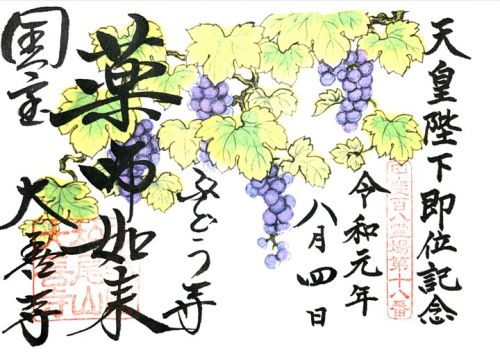 天皇陛下即位記念
甲斐百八霊場第十八番
令和元年
八月四日
ぶどう寺
薬師如来
国宝
大善寺
柏尾山
大善寺